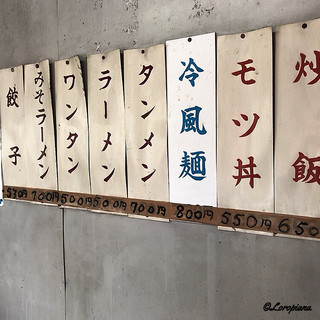 炒飯
モツ丼
冷風麺
タンメン
ラーメン
ワンタン
みそラーメン
餃子
530円 700円 500円 500円 700円 800円 550円 650
@Loropiana